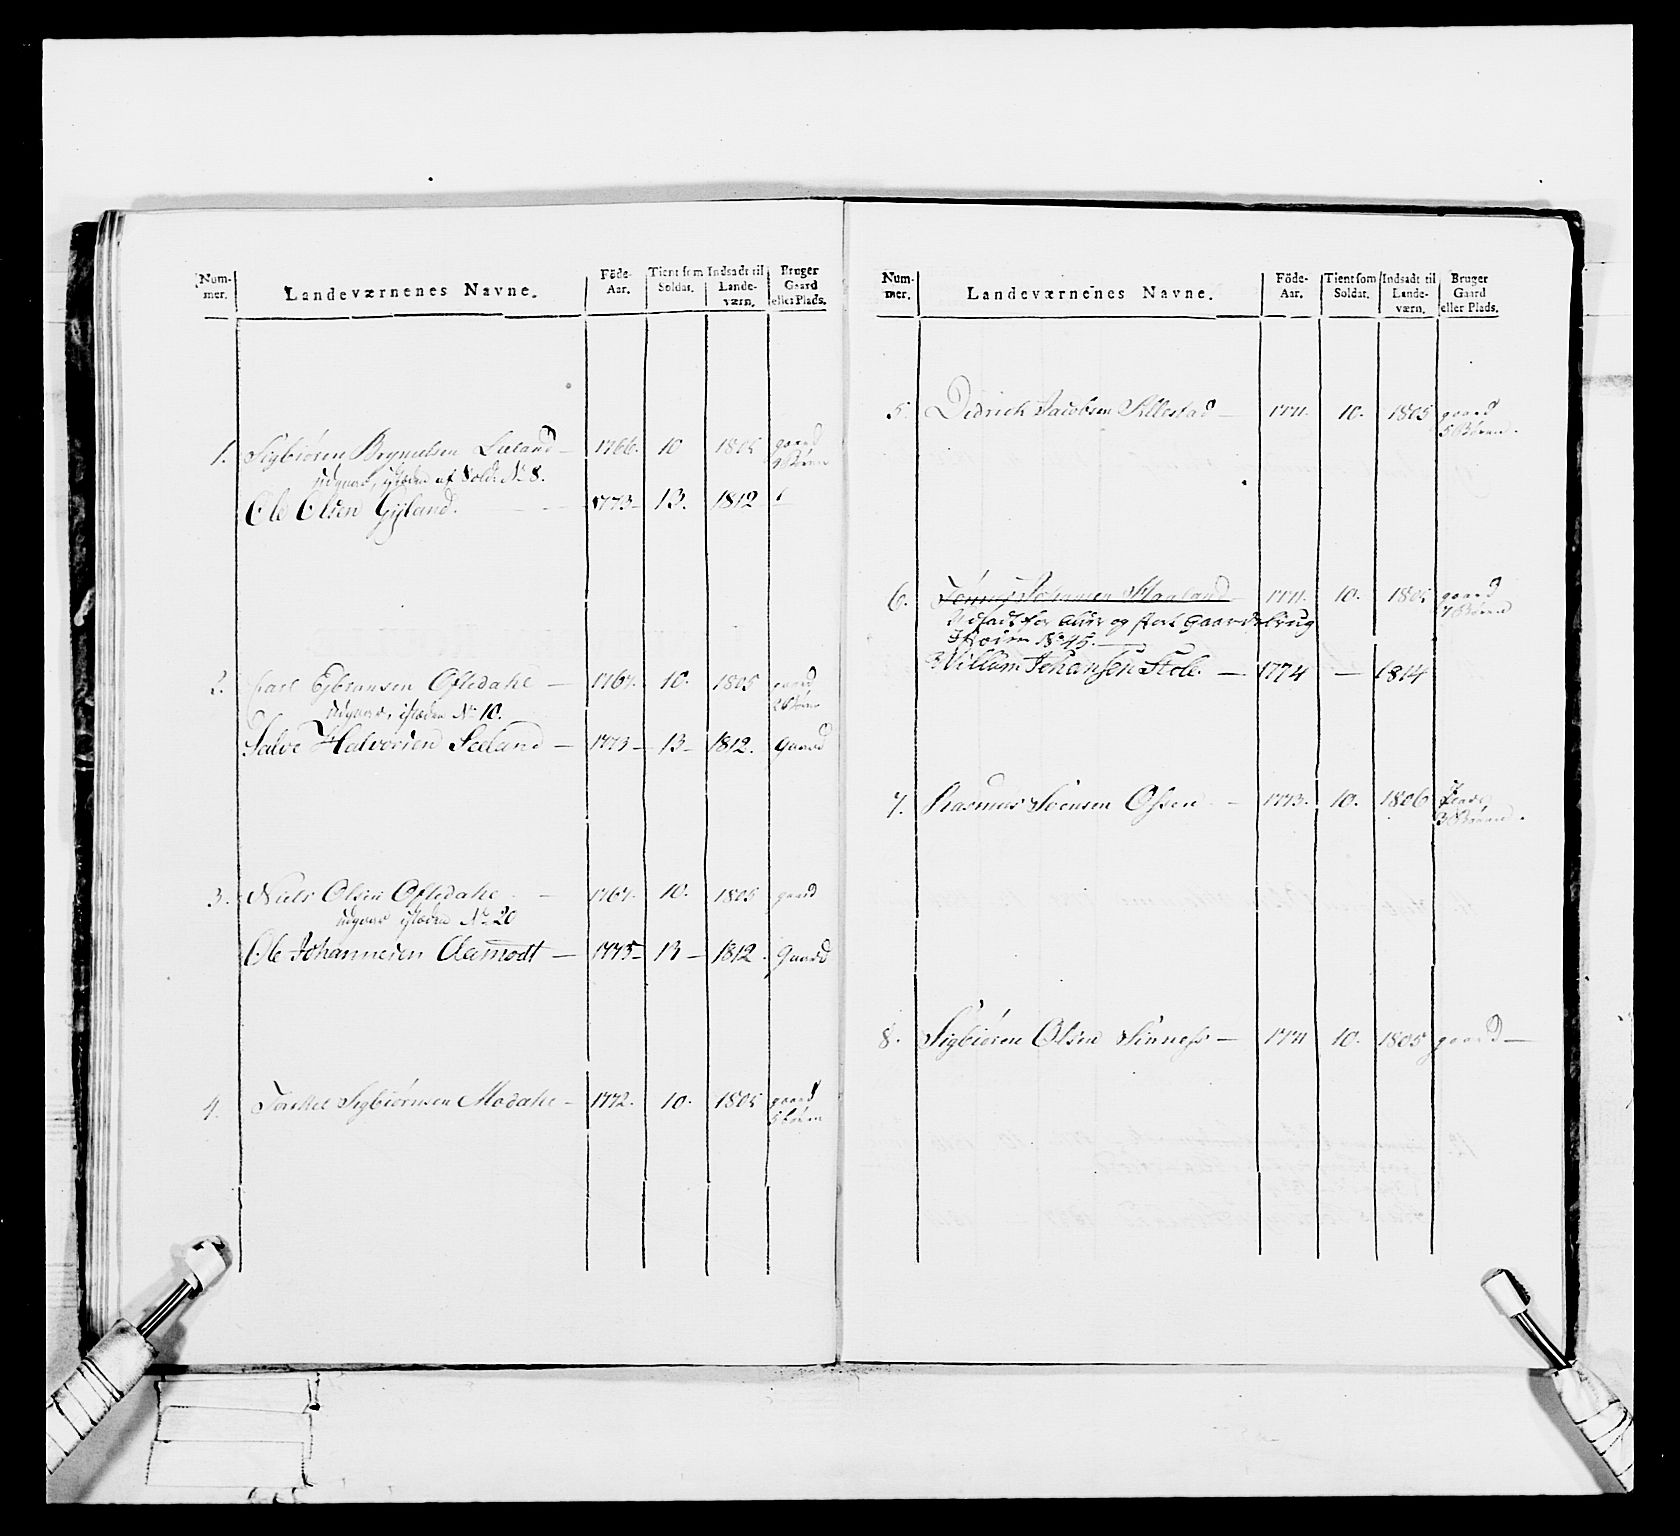 Num-
mer.
Landeværnenes Navne.
Föde-
Aar.
Tient som
Soldat.
Indsadt til
Lande-
værn.
Bruger
Gaard
eller Plads.
1. Sigbiören Brynielsen Lieland — 1766. 10 1805 gaard
Börn
udgaar, isteden af Sold: No 8.
Ole Olsen Gyland. — 1773 — 13. 1812
2. Carl Ejbransen Oftedahl — 1767. 10. 1805 gaard
2 Börn
udgaar, isteden No 10.
Salve Halvorsen Seeland — 1773 — 13 — 1812. Gaard
3. Niels Olsen Oftedahl — 1767. 10. 1805 gaard
udgaar isteden No 20
Ole Johannesen Aamodt — 1775 — 13 — 1812. Gaard
4. Torkel Sigbiörnsen Modahl — 1772. 10. 1805 gaard
5 börn
Num-
mer.
Landeværnenes Navne.
Föde-
Aar.
Tient som
Soldat.
Indsadt til
Lande-
værn.
Bruger
Gaard
eller Plads.
5. Didrich Jacobsen Sillestad — 1771. 10. 1805 gaard
5 Börn.
6. Tönnes Johansen Staaland 1771. 10. 1805 gaard
4 Börn
Udsadt for og stort Gaardsbrug
No 45.
Willum Johansen Stole. — 1774 — 1814
7. Rasmus Svensen Ossen — 1773. 10. 1806
3 Börn.
8. Sigbiören Olsen Sinnes — 1771 10. 1805 gaard —